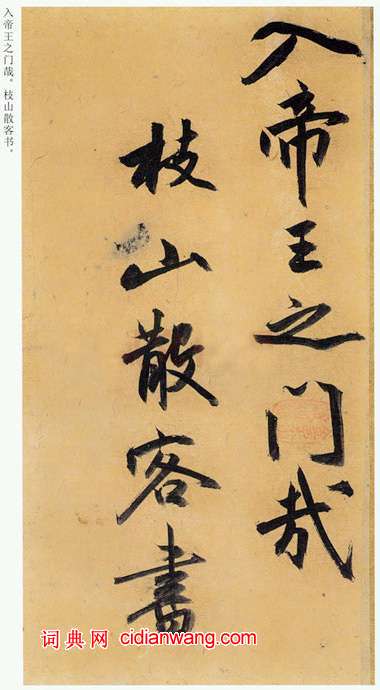 入帝王之门哉。枝山散客书。
入帝王之门哉
枝山散客書
词典网 cidianwang.com